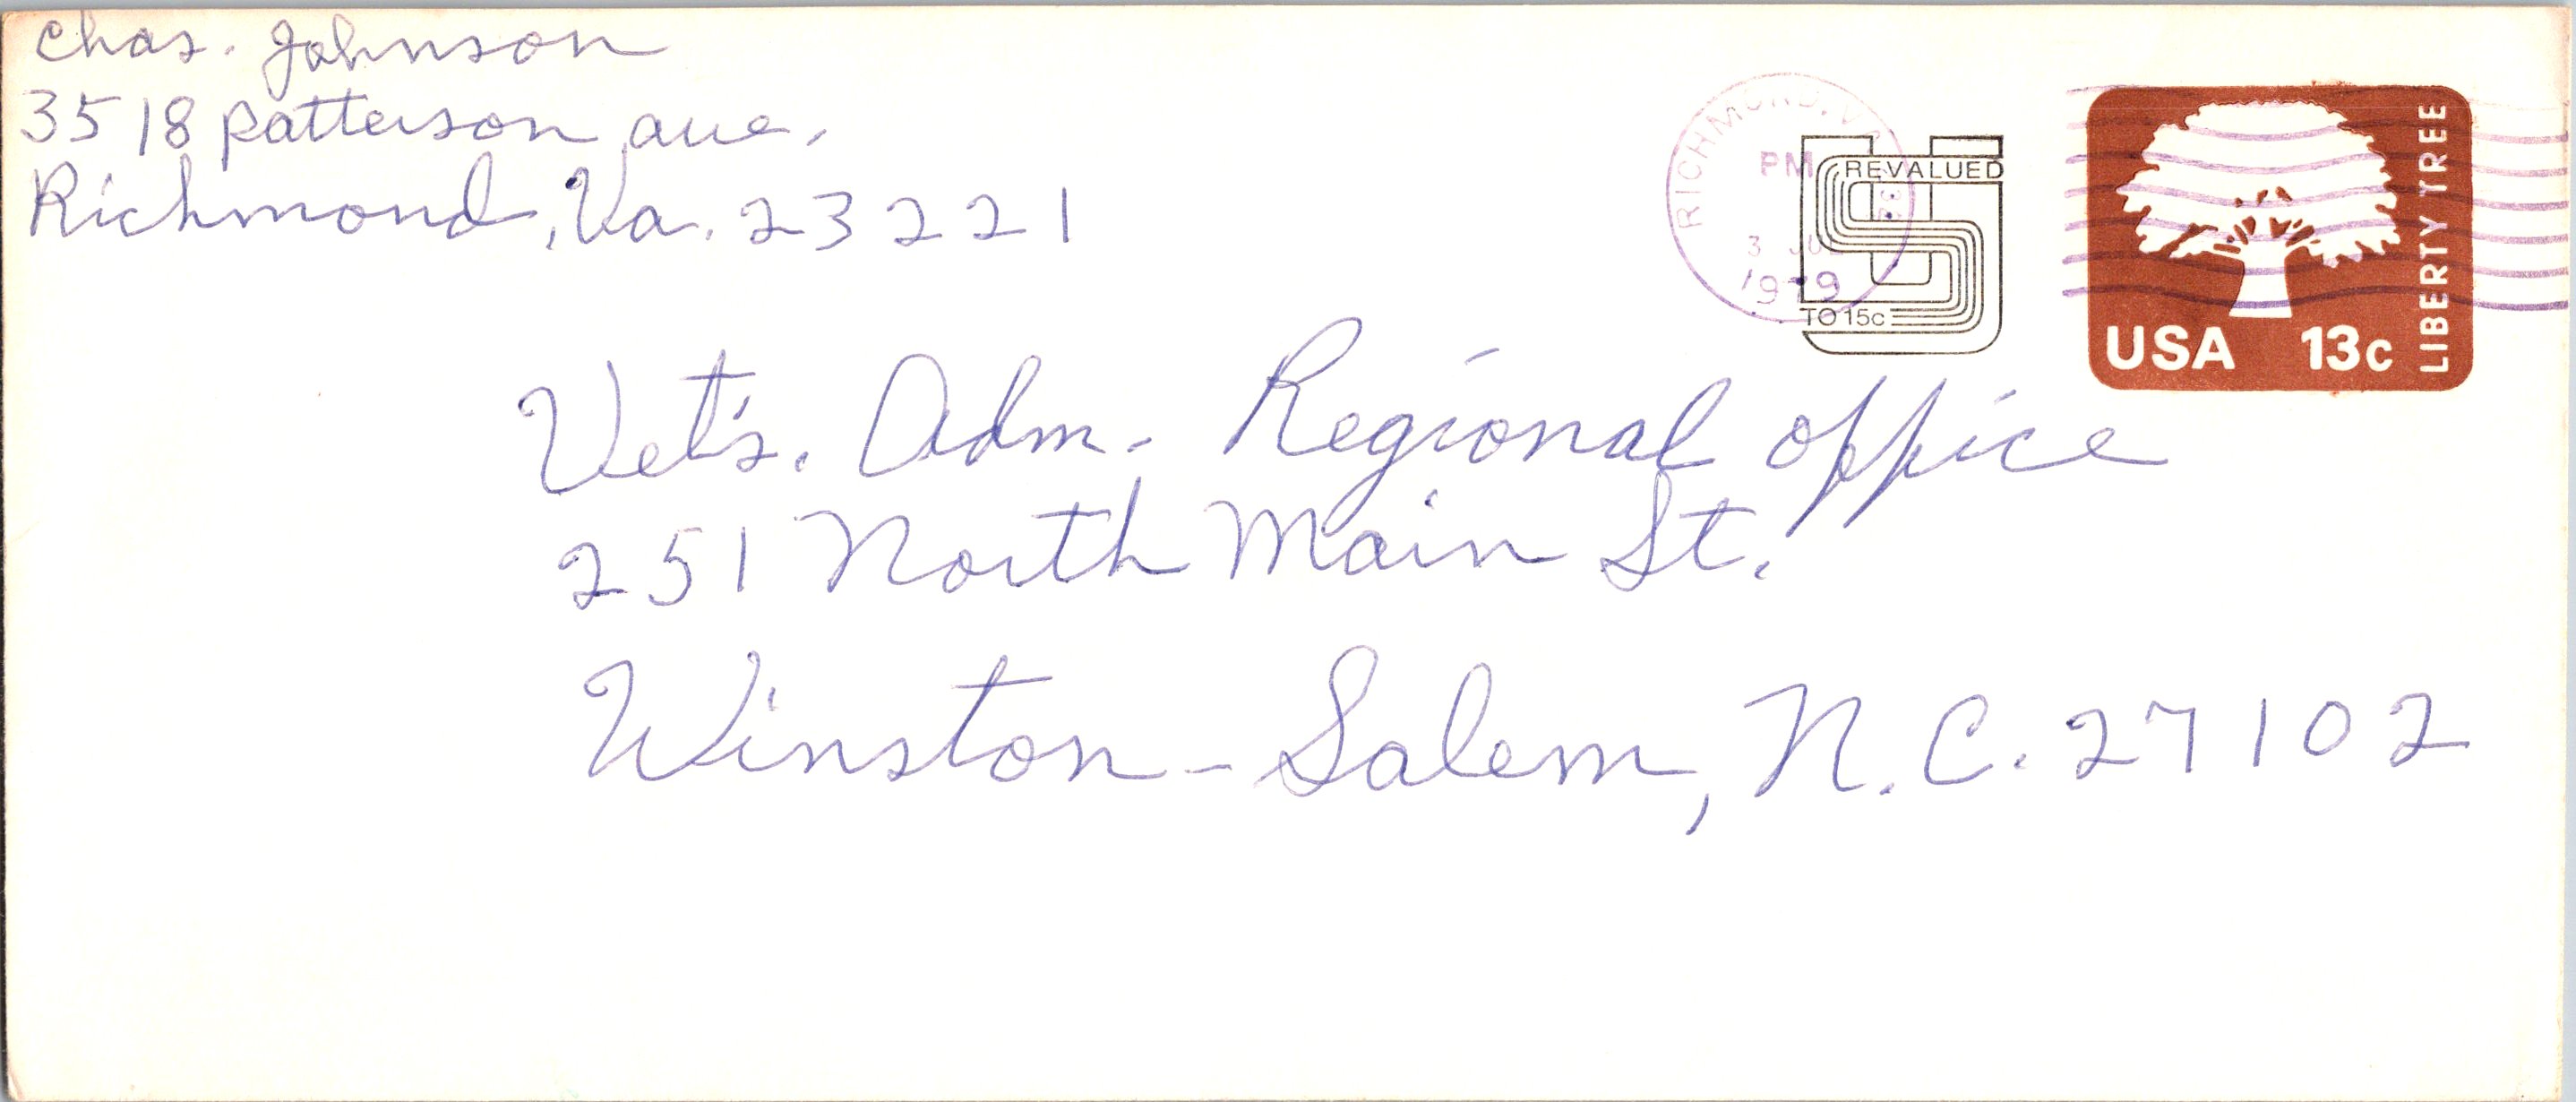 Chas. Johnson
3518 Patterson Ave.
Richmond, Va. 23221
RICHMOND, VA
PM
3 JUL
1979
REVALUED
TO 15c
USA 13c
LIBERTY TREE
Vet's. Adm. Regional Office
251 North Main St.
Winston-Salem, N.C. 27102